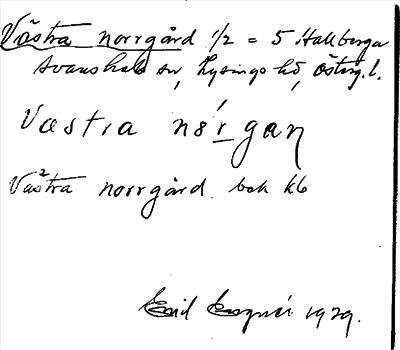 Västra norrgård 1/2 = 5 Hallberga
Svanshals sn, Lysings hd, Österg. l.
Vastra nór gaŋ
Västra norrgård bok kb
Emil 1929.